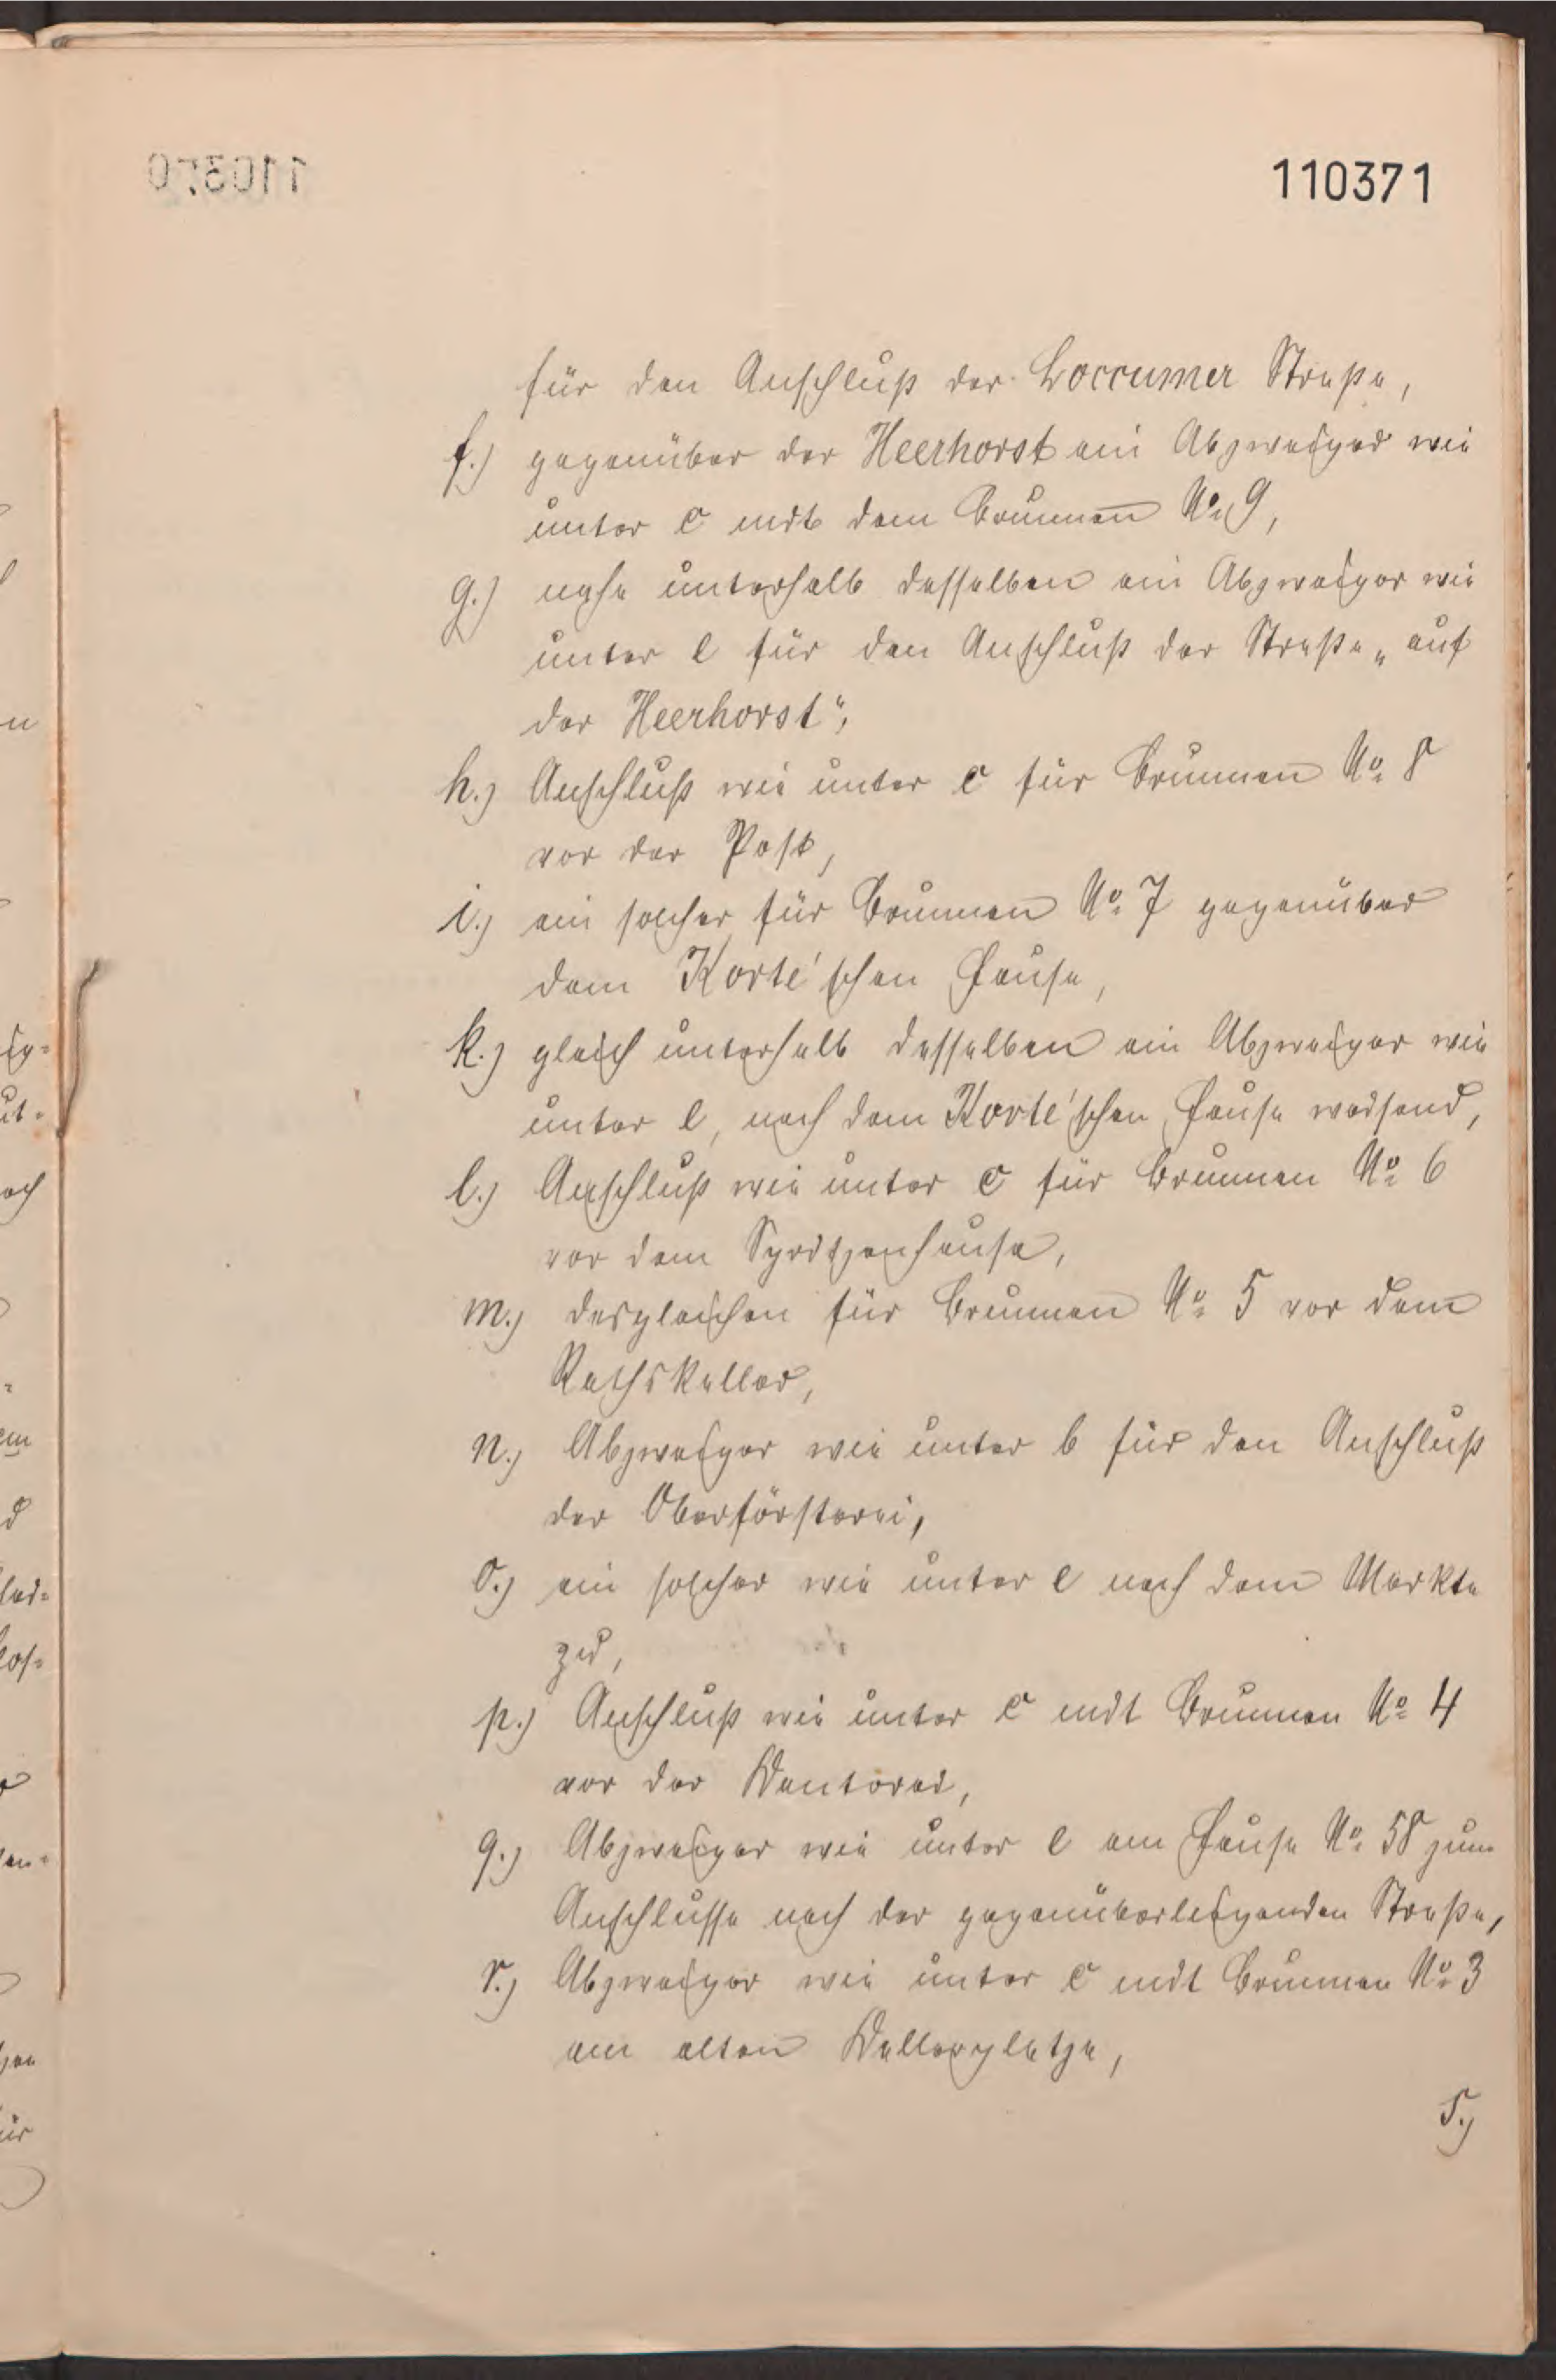 110371
für den Anschluß der Loccumer Straße,
f.) gegenüber der Heerhorst ein Abzweiger wie
unter c mit dem Brunnen No. 9,
g.) nahe unterhalb desselben ein Abzweiger wie
unter e für den Anschluß der Straße „auf
der Heerhorst“,
h.) Anschluß wie unter c für Brunnen No. 8
vor der Post,
i.) ein solcher für Brunnen No. 7 gegenüber
dem Korte'schen Hause,
k.) gleich unterhalb desselben ein Abzweiger wie
unter e, nach dem Korte'schen Hause weisend,
l.) Anschluß wie unter c für Brunnen No. 6
vor dem Spritzenhause,
m.) desgleichen für Brunnen No. 5 vor dem
Rathskeller,
n.) Abzweiger wie unter b für den Anschluß
der Oberförsterei,
o.) ein solcher wie unter e nach dem Markte
zu,
p.) Anschluß wie unter c mit Brunnen No. 4
vor der Kantorei,
q.) Abzweiger wie unter e am Hause No. 58 zum
Anschlusse nach der gegenüberliegenden Straße,
r.) Abzweiger wie unter c mit Brunnen No. 3
am alten Kellerplatze,
s.)